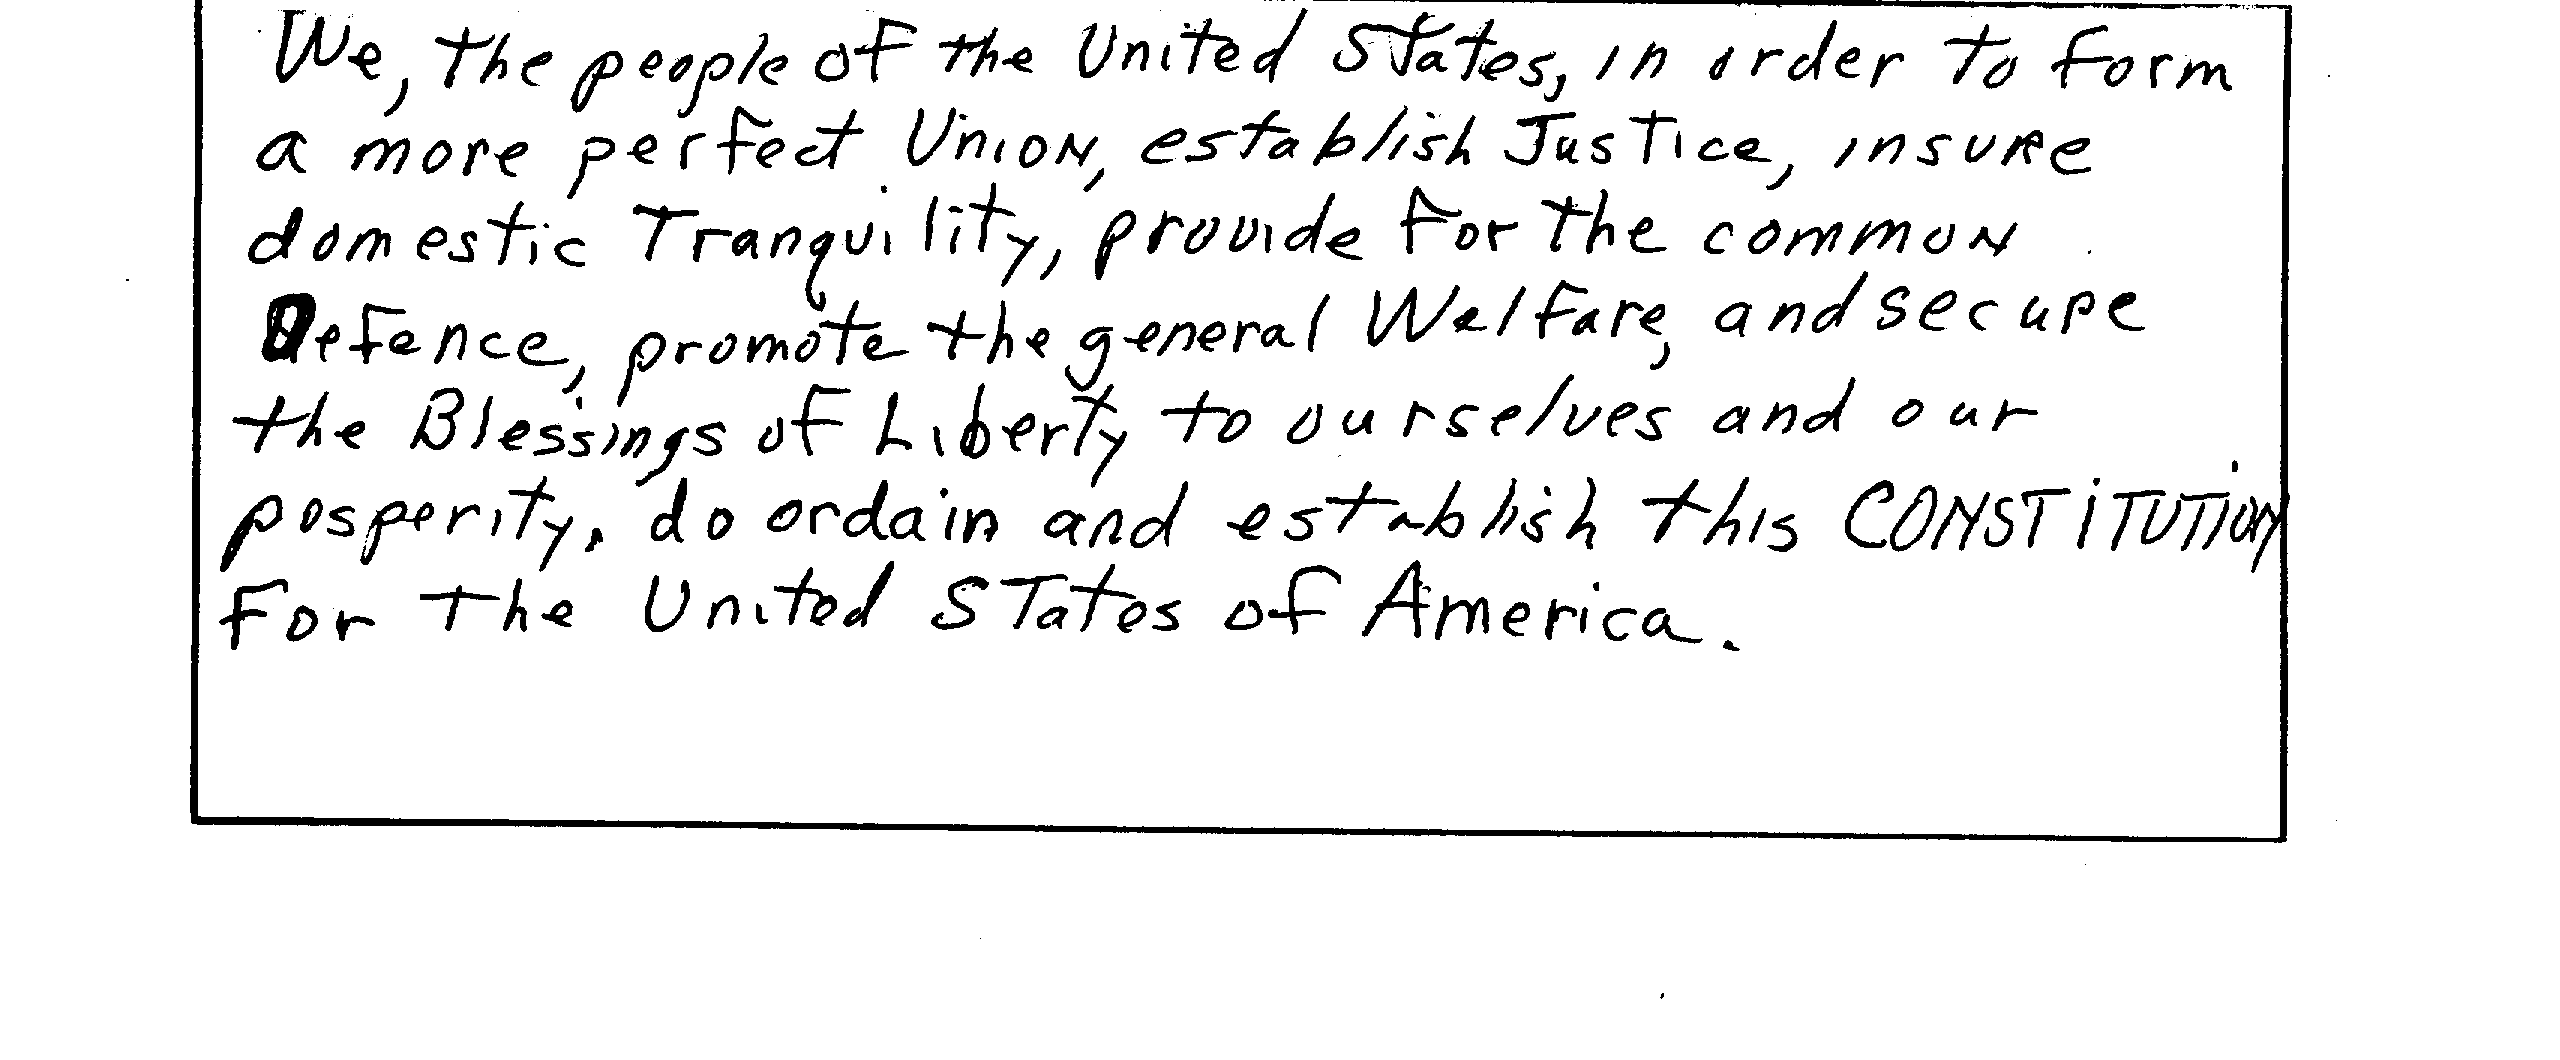 We, the people of the United States, in order to form
a more perfect Union, establish Justice, insure
domestic Tranquility, provide for the common
Defence, promote the general Welfare, and secure
the Blessings of Liberty to ourselves and our
posperity, do ordain and establish this CONSTITUTION
for the United States of America.